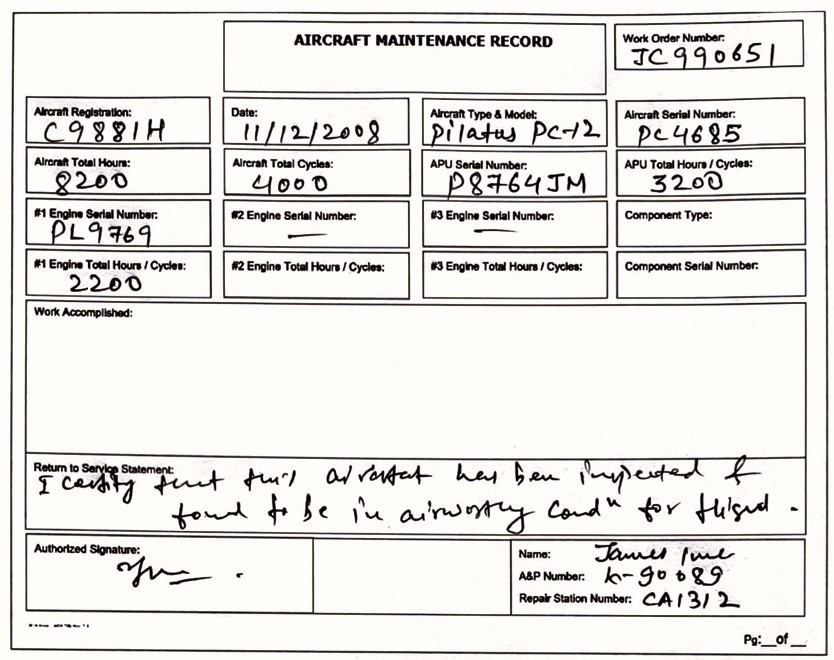 AIRCRAFT MAINTENANCE RECORD
Work Order Number:
JC990651
Aircraft Registration: Date: Aircraft Type & Model: Aircraft Serial Number:
C9881H 11/12/2008 Pilatus PC-12 PC4685
Aircraft Total Hours: Aircraft Total Cycles: APU Serial Number: APU Total Hours / Cycles:
8200 4000 P8764JM 3200
#1 Engine Serial Number: #2 Engine Serial Number: #3 Engine Serial Number: Component Type:
PL9769 — —
#1 Engine Total Hours / Cycles: #2 Engine Total Hours / Cycles: #3 Engine Total Hours / Cycles: Component Serial Number:
2200
Work Accomplished:
Return to Service Statement:
I certify that this aircraft has been inspected &
found to be in airworthy condn for flight.
Authorized Signature:
Name: James
A&P Number: K-90089
Repair Station Number: CA1312
Pg:__of __